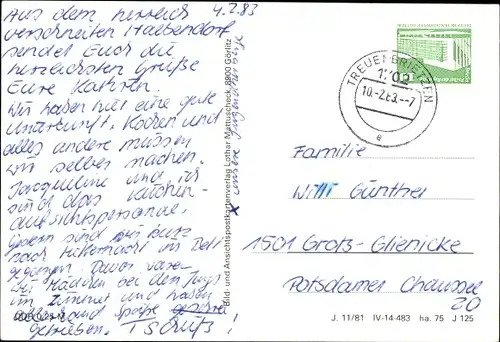 4.2.83
Aus dem herrlich
verschneiten Halbendorf
sendet Euch die
herzlichsten Grüße
Eure Kathrin.
Wir haben hier eine gute
Unterkunft. Kochen und
alles andere müssen
wir selber machen.
Jacqueline und ich
sind das Küchen-
aufsichtspersonal.
Gestern sind wir kurz
nach Mitternacht ins Bett
gegangen. Davor waren
wir Mädchen bei den Jungs
im Zimmer und haben
und Späße
getrieben. Tschüß!
Bild- und Ansichtspostkartenverlag Lothar Mattuscheck, 8900 Görlitz
x unsre Jugendherberge
TREUENBRIETZEN
1702
10.-2.83.--7
e
Familie
Willi Günther
1501 Groß-Glienicke
Potsdamer Chaussee
20
J. 11/81 IV-14-483 ha. 75 J 125